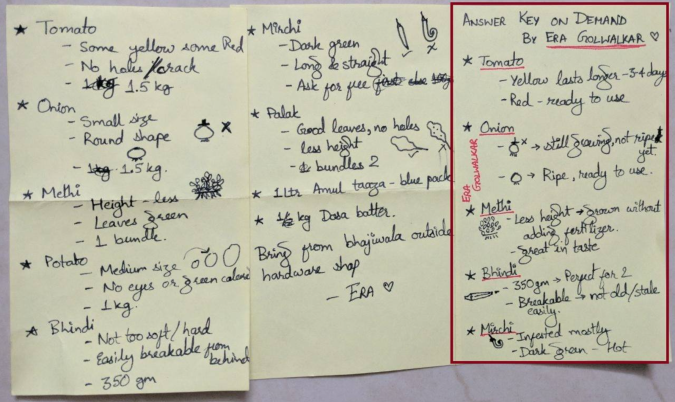 ★ Tomato
- Some yellow some Red
- No holes/crack
- 1.5 kg
★ Onion
- Small size
- Round shape
- 1.5 kg.
★ Methi
- Height - less
- Leaves green
- 1 bundle.
★ Potato
- Medium size
- No eyes or green
- 1 kg.
★ Bhindi
- Not too soft/hard
- Easily breakable from behind
- 350 gm
★ Mirchi
- Dark green
- Long & straight
- Ask for free
★ Palak
- Good leaves, no holes
- less height
- bundles 2
★ 1 Ltr Amul taaza - blue pack
★ kg Dosa batter.
Bring from bhajiwala outside
hardware shop
- ERA ♡
ANSWER KEY ON DEMAND
BY ERA GOLWALKAR ♡
★ Tomato
- Yellow lasts longer - 3-4 days
- Red - ready to use
★ Onion
- → still growing, not ripe
yet.
- → Ripe, ready to use.
ERA
GOLWALKAR
★ Methi
- Less height → grown without
adding fertilizer.
- Great in taste
★ Bhindi
- 350gm → Perfect for 2
- Breakable → not old/stale
easily.
★ Mirchi
- Infected mostly
- Dark green - Hot